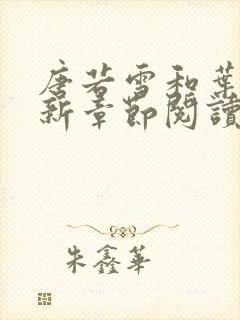 唐若雪和葉
新章節閱讀
朱鑫華